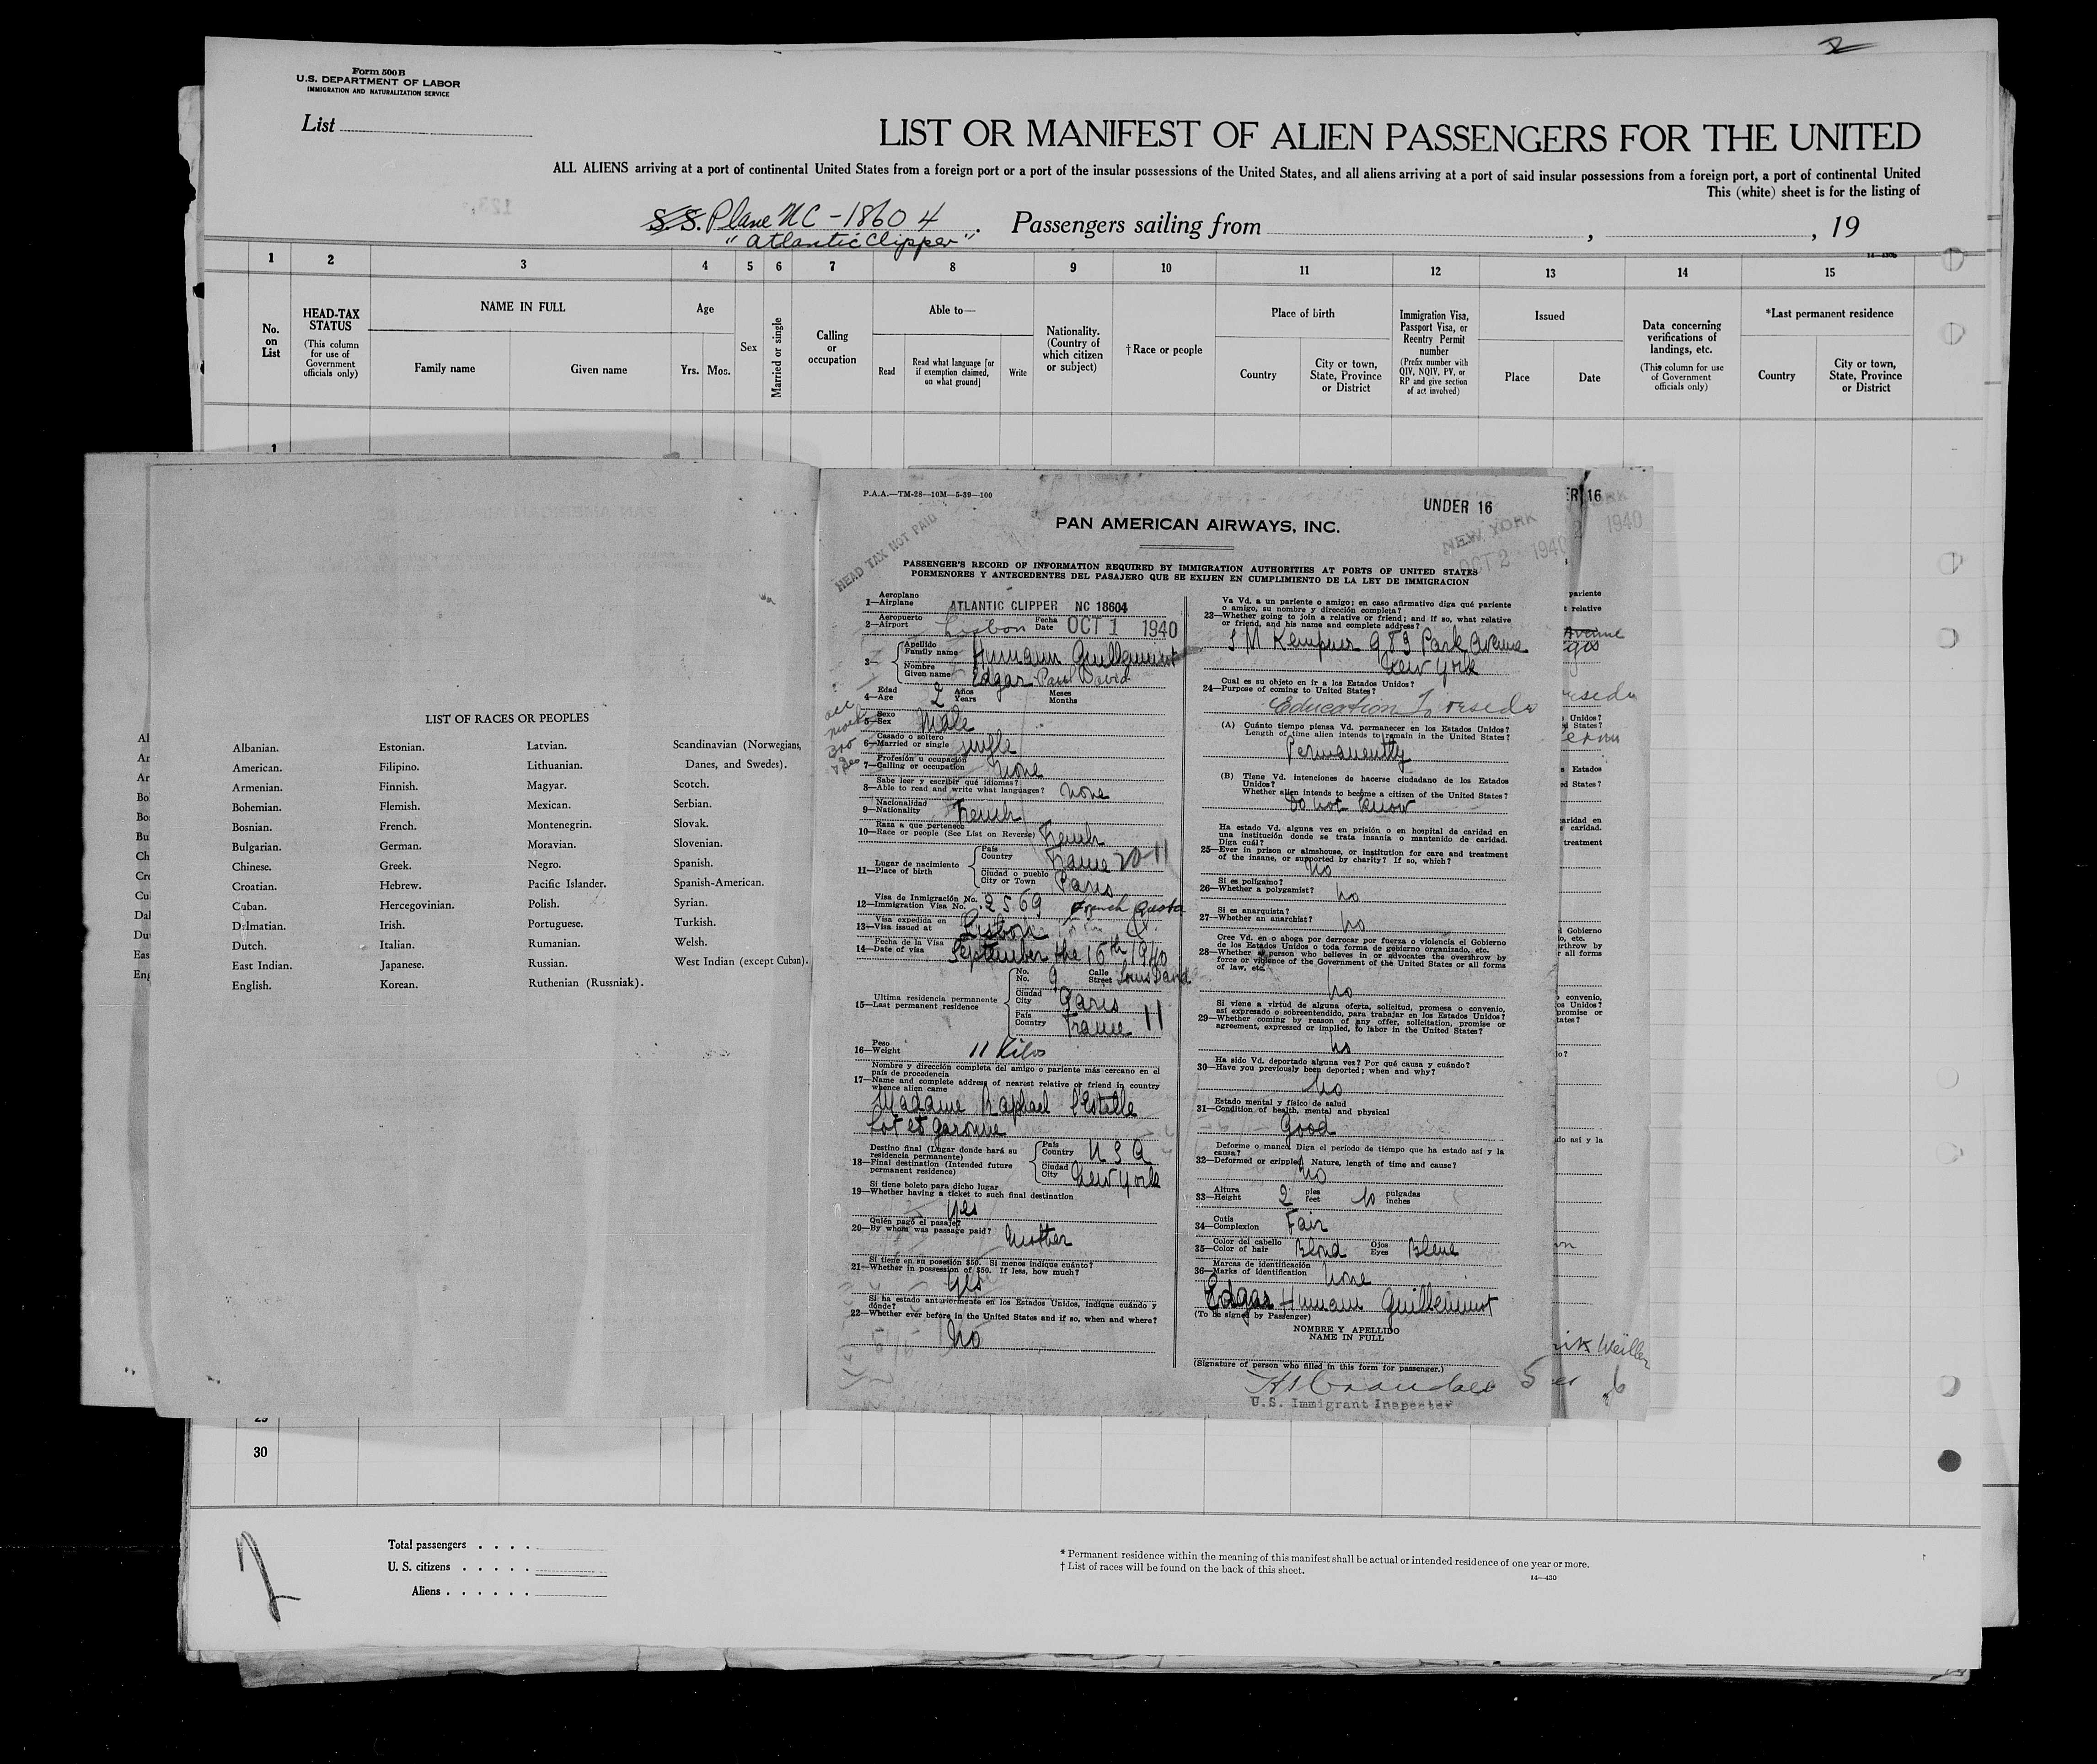 Form 500 B
U.S. DEPARTMENT OF LABOR
IMMIGRATION AND NATURALIZATION SERVICE
List
LIST OR MANIFEST OF ALIEN PASSENGERS FOR THE UNITED
ALL ALIENS arriving at a port of continental United States from a foreign port or a port of the insular possessions of the United States, and all aliens arriving at a port of said insular possessions from a foreign port, a port of continental United
This (white) sheet is for the listing of
S.S. Plane NC-18604 . Passengers sailing from , , 19
"Atlantic Clipper"
14—430b
1 2 3 4 5 6 7 8 9 10 11 12 13 14 15
No. on List
HEAD-TAX STATUS
(This column for use of Government officials only)
NAME IN FULL
Family name Given name
Age
Yrs. Mos.
Sex
Married or single
Calling or occupation
Able to—
Read
Read what language [or if exemption claimed, on what ground]
Write
Nationality. (Country of which citizen or subject)
† Race or people
Place of birth
Country
City or town, State, Province or District
Immigration Visa, Passport Visa, or Reentry Permit number
(Prefix number with QIV, NQIV, PV, or RP and give section of act involved)
Issued
Place Date
Data concerning verifications of landings, etc.
(This column for use of Government officials only)
*Last permanent residence
Country
City or town, State, Province or District
1
LIST OF RACES OR PEOPLES
Albanian. Estonian. Latvian. Scandinavian (Norwegians,
American. Filipino. Lithuanian. Danes, and Swedes).
Armenian. Finnish. Magyar. Scotch.
Bohemian. Flemish. Mexican. Serbian.
Bosnian. French. Montenegrin. Slovak.
Bulgarian. German. Moravian. Slovenian.
Chinese. Greek. Negro. Spanish.
Croatian. Hebrew. Pacific Islander. Spanish-American.
Cuban. Hercegovinian. Polish. Syrian.
Dalmatian. Irish. Portuguese. Turkish.
Dutch. Italian. Rumanian. Welsh.
East Indian. Japanese. Russian. West Indian (except Cuban).
English. Korean. Ruthenian (Russniak).
P.A.A.—TM-28—10M—5-39—100
UNDER 16
PAN AMERICAN AIRWAYS, INC.
HEAD TAX NOT PAID
NEW YORK
OCT 2 1940
PASSENGER'S RECORD OF INFORMATION REQUIRED BY IMMIGRATION AUTHORITIES AT PORTS OF UNITED STATES
PORMENORES Y ANTECEDENTES DEL PASAJERO QUE SE EXIJEN EN CUMPLIMIENTO DE LA LEY DE IMMIGRACION
Aeroplano
1—Airplane ATLANTIC CLIPPER NC 18604
Aeropuerto
2—Airport Lisbon Fecha Date OCT 1 1940
3— Apellido
Family name Humann Guilleminot
Nombre
Given name Edgar Paul David
Edad
4—Age 2 Años Years Meses Months
Sexo
5—Sex Male
Casado o soltero
6—Married or single single
Profesión u ocupación
7—Calling or occupation none
Sabe leer y escribir qué idiomas?
8—Able to read and write what languages? none
Nacionalidad
9—Nationality French
Raza a que pertenece
10—Race or people (See List on Reverse) French
Lugar de nacimiento
11—Place of birth
País
Country France 20-11
Ciudad o pueblo
City or Town Paris
Visa de Inmigración No.
12—Immigration Visa No. 2569 French Quota
Visa expedida en
13—Visa issued at Lisbon
Fecha de la Visa
14—Date of visa September the 16th 1940
Ultima residencia permanente
15—Last permanent residence
No.
No. 9 Calle Street Louis David
Ciudad
City Paris
País
Country France 11
Peso
16—Weight 11 Kilos
Nombre y dirección completa del amigo o pariente más cercano en el
país de procedencia
17—Name and complete address of nearest relative or friend in country
whence alien came
Madame Raphael
Lot et Garonne
Destino final (Lugar donde hará su
residencia permanente)
18—Final destination (Intended future
permanent residence)
País
Country U S A
Ciudad
City New York
Si tiene boleto para dicho lugar
19—Whether having a ticket to such final destination
Yes
Quién pagó el pasaje?
20—By whom was passage paid? Mother
Si tiene en su posesión $50. Si menos indique cuánto?
21—Whether in possession of $50. If less, how much?
Yes
Si ha estado anteriormente en los Estados Unidos, indique cuándo y
dónde?
22—Whether ever before in the United States and if so, when and where?
No
Va Vd. a un pariente o amigo; en caso afirmativo diga qué pariente
o amigo, su nombre y dirección completa?
23—Whether going to join a relative or friend; and if so, what relative
or friend, and his name and complete address?
S M Kempner 983 Park Avenue
New York
Cual es su objeto en ir a los Estados Unidos?
24—Purpose of coming to United States?
Education To reside
(A) Cuánto tiempo piensa Vd. permanecer en los Estados Unidos?
Length of time alien intends to remain in the United States?
Permanently
(B) Tiene Vd. intenciones de hacerse ciudadano de los Estados
Unidos?
Whether alien intends to become a citizen of the United States?
Do not know
Ha estado Vd. alguna vez en prisión o en hospital de caridad en
una institución donde se trata insania o mantenido de caridad.
Diga cuál?
25—Ever in prison or almshouse, or institution for care and treatment
of the insane, or supported by charity? If so, which?
No
Si es polígamo?
26—Whether a polygamist? no
Si es anarquista?
27—Whether an anarchist? no
Cree Vd. en o aboga por derrocar por fuerza o violencia el Gobierno
de los Estados Unidos o toda forma de gobierno organizado, etc.
28—Whether a person who believes in or advocates the overthrow by
force or violence of the Government of the United States or all forms
of law, etc.
no
Si viene a virtud de alguna oferta, solicitud, promesa o convenio,
así expresado o sobreentendido, para trabajar en los Estados Unidos?
29—Whether coming by reason of any offer, solicitation, promise or
agreement, expressed or implied, to labor in the United States?
no
Ha sido Vd. deportado alguna vez? Por qué causa y cuándo?
30—Have you previously been deported; when and why?
No
Estado mental y físico de salud
31—Condition of health, mental and physical
Good
Deforme o manco. Diga el período de tiempo que ha estado así y la
causa?
32—Deformed or crippled. Nature, length of time and cause?
No
Altura
33—Height 2 pies feet 10 pulgadas inches
Cutis
34—Complexion Fair
Color del cabello
35—Color of hair Blond Ojos Eyes Bleue
Marcas de identificación
36—Marks of identification None
Edgar Humann Guilleminot
(To be signed by Passenger)
NOMBRE Y APELLIDO
NAME IN FULL
(Signature of person who filled in this form for passenger.)
U.S. Immigrant Inspector
30
2
Total passengers . . . .
U. S. citizens . . . . .
Aliens . . . . . .
* Permanent residence within the meaning of this manifest shall be actual or intended residence of one year or more.
† List of races will be found on the back of this sheet.
14—430